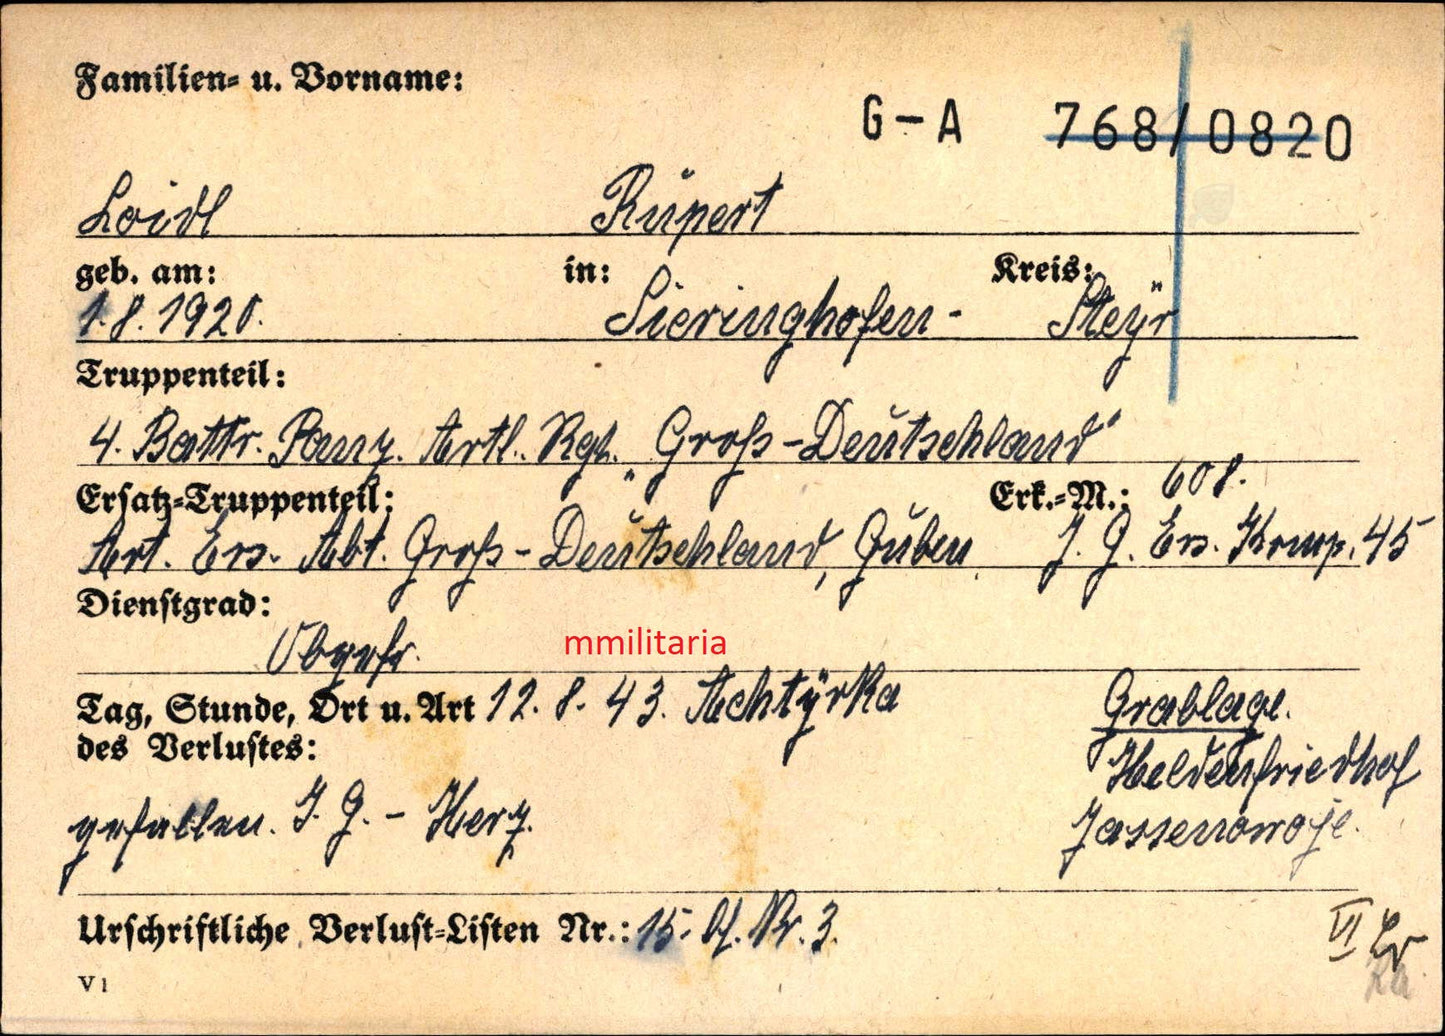 Familien- u. Vorname:
G-A 768/0820
Loidl Rupert
geb. am: in: Kreis:
1.8.1920. Sieringhofen - Steyr
Truppenteil:
4. Battr. Panz. Artl. Rgt. „Groß-Deutschland"
Ersatz-Truppenteil: Erk.-M.: 608.
Art. Ers. Abt. Groß-Deutschland, Guben J. G. Ers. Komp. 45
Dienstgrad:
Obgefr.
mmilitaria
Tag, Stunde, Ort u. Art 12. 8. 43. Achtyrka
des Verlustes:
Grablage.
Heldenfriedhof
Jassenowoje.
gefallen. J. G. - Herz.
Urschriftliche Verlust-Listen Nr.: 15. Nr. 3.
VI
V1